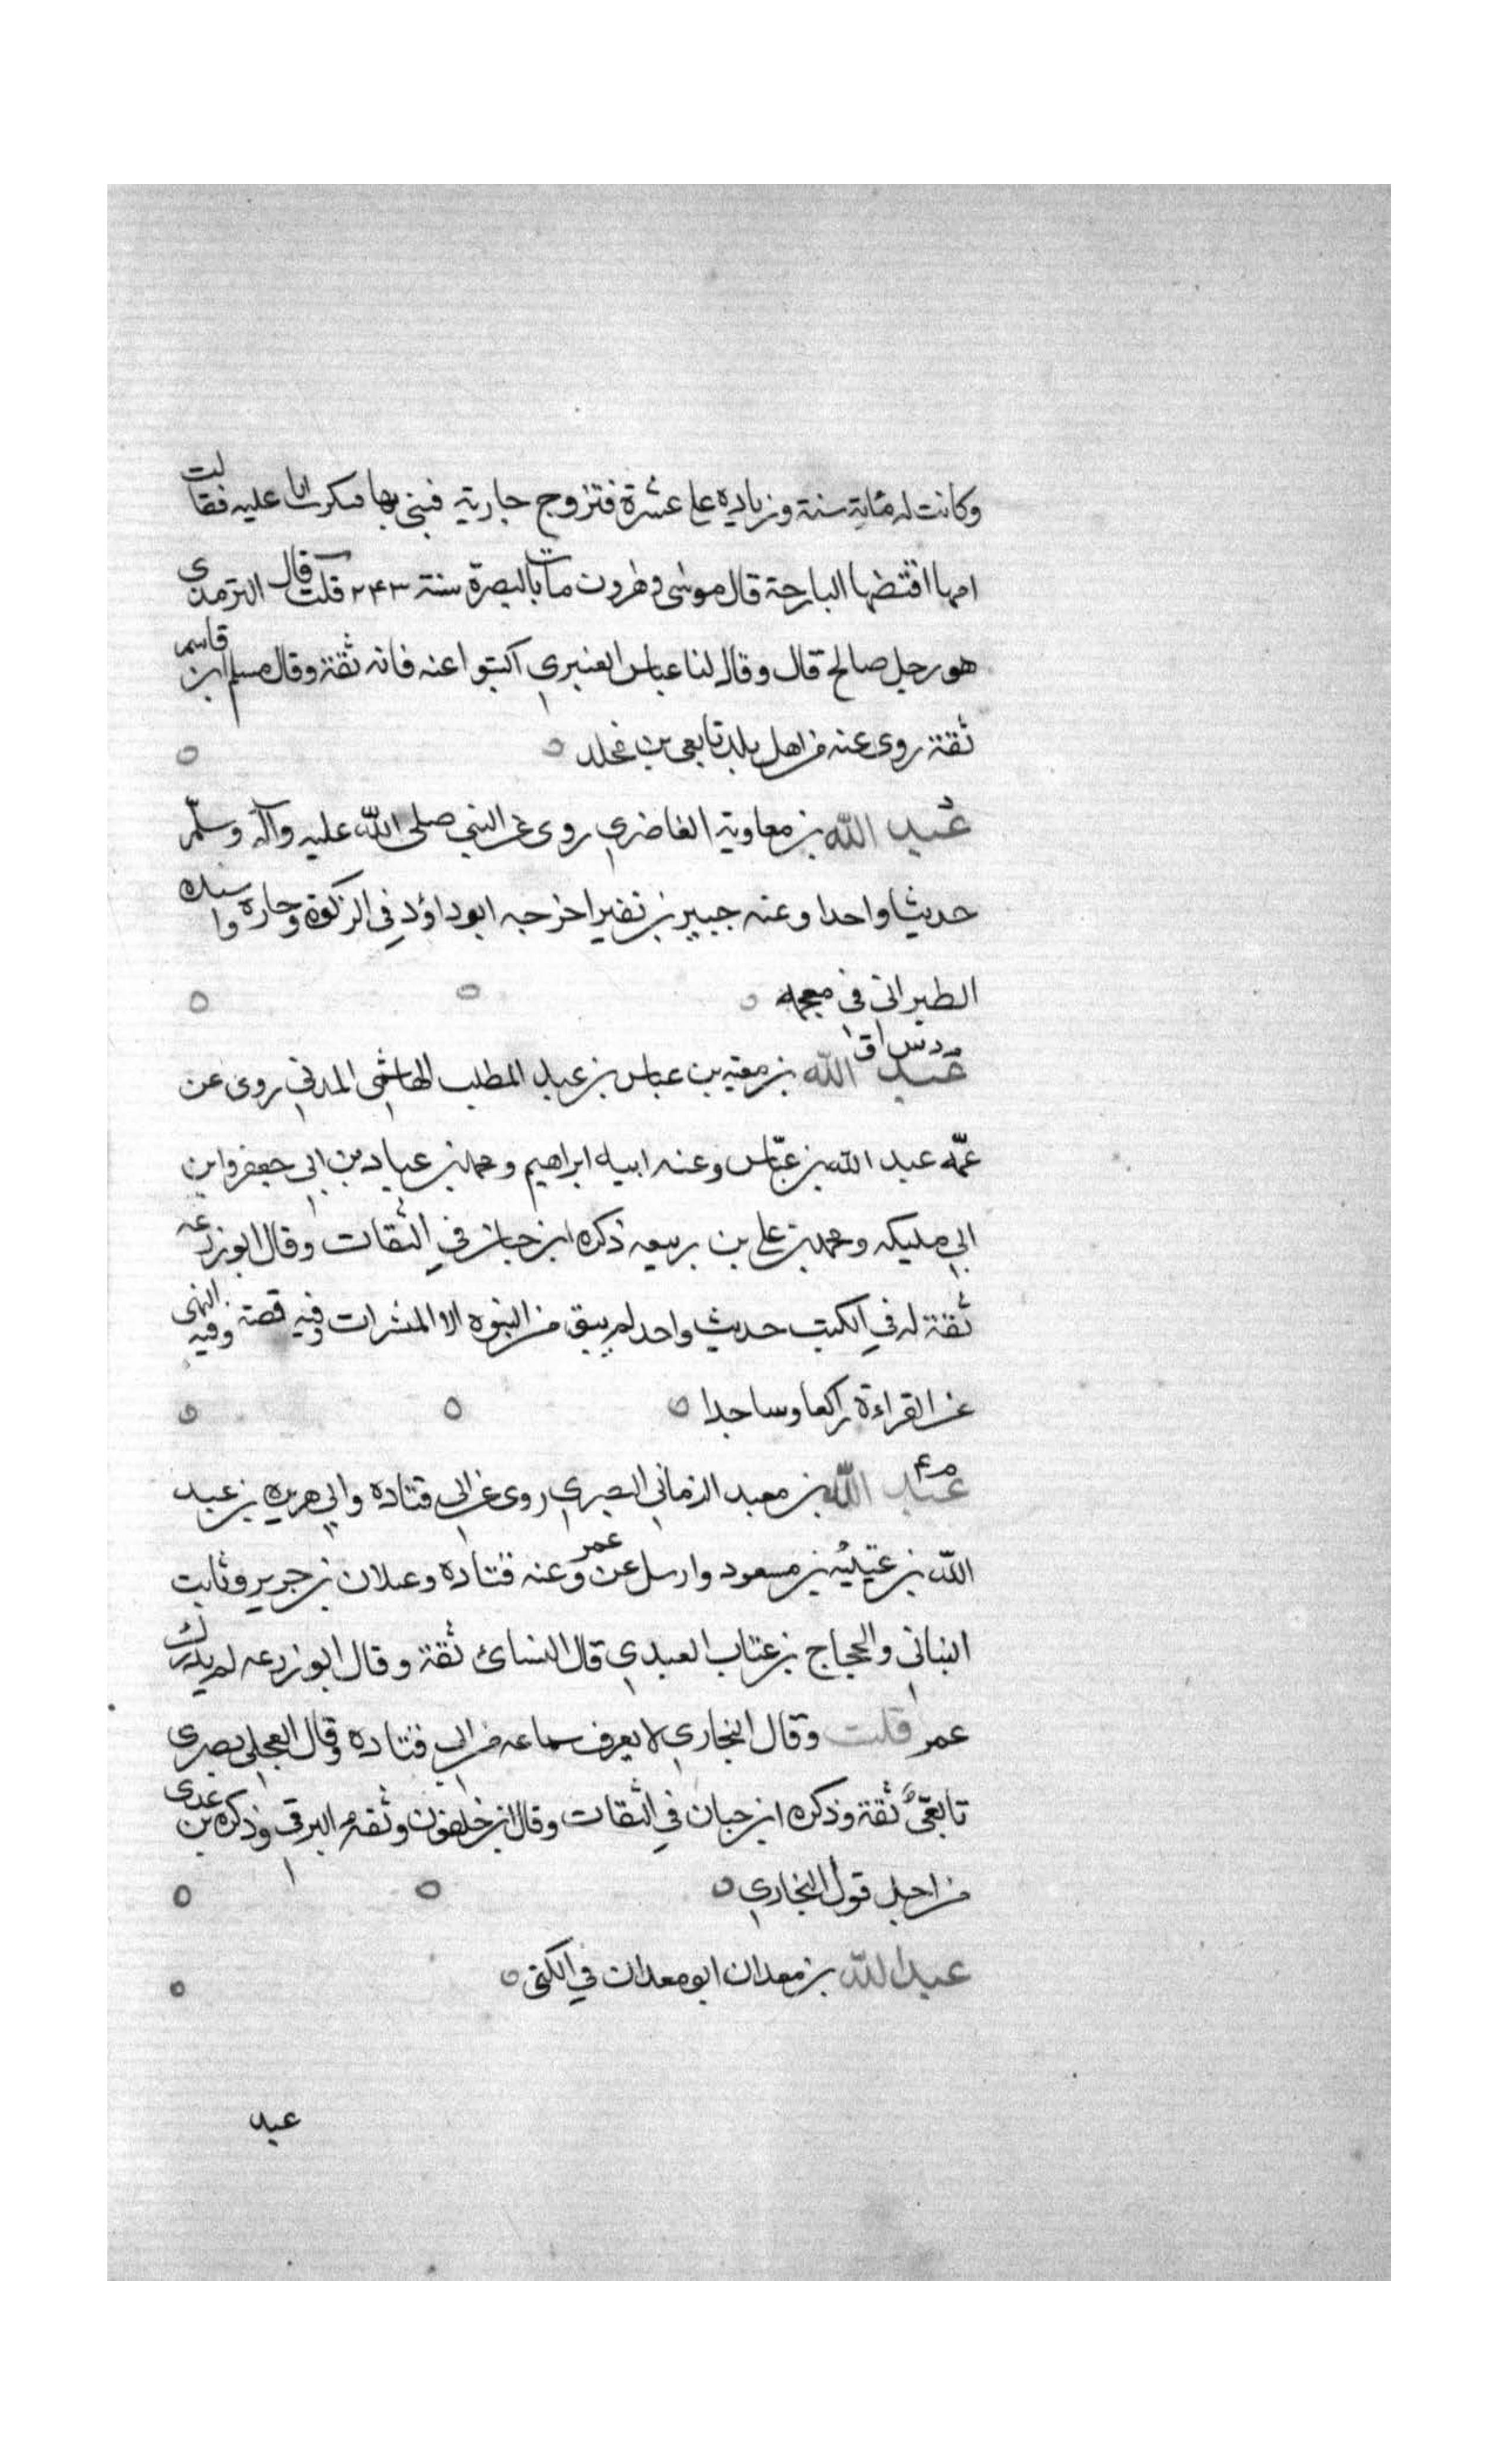 وكانت له مائة سنة وزياده على عشرة فتزوج جارية فبنى بها فبكرنا عليه فقالت
امها اقتضها البارحة قال موسى بن هارون مات بالبصرة سنة ٢٤٣ قلت قال الترمذي
هو رجل صالح قال وقال لنا عباس العنبري اكتبوا عنه فانه ثقة وقال مسلم ابن قاسم
ثقة روى عنه من اهل بلد تابعى بن مخلد
عبد الله بن معاوية الغاضري روى عن النبي صلى الله عليه وآله وسلّم
حديثا واحدا وعنه جبير بن نفير اخرجه ابو داؤد في الزكوة وجاره واسنده
الطبراني في معجمه
م د س ق
عبد الله بن معبد بن عباس بن عبد المطلب الهاشمى المدني روى عن
عمّه عبد الله بن عبّاس وعنه ابنيه ابراهيم ومحمد بن عباد بن ابي جعفر وابن
ابي مليكه ومحمد بن علي بن ربيعه ذكره ابن حبان في الثقات وقال ابو زرعه
ثقة له في الكتب حديث واحد لم يبق من النبوه الا المبشرات وفيه قصة وفيه النهى
عن القراءة راكعا وساجدا
م ع
عبد الله بن معبد الزماني البصري روى عن ابي قتاده وابي هريره بن عبد
الله بن عتبة بن مسعود وارسل عن عمر وعنه قتاده وعلان بن جرير وثابت
البناني والحجاج بن عتاب العبدي قال النسائ ثقة وقال ابو زرعه لم يدرك
عمر قلت وقال البخاري لا يعرف سماعه من ابي قتاده وقال العجلي بصرى
تابعيّ ثقة وذكره ابن حبان في الثقات وقال ابن خلفون وثقه البرقي وذكره بن عدى
من اجل قول البخاري
عبد الله بن معدان ابو معدان في الكنى
عبد